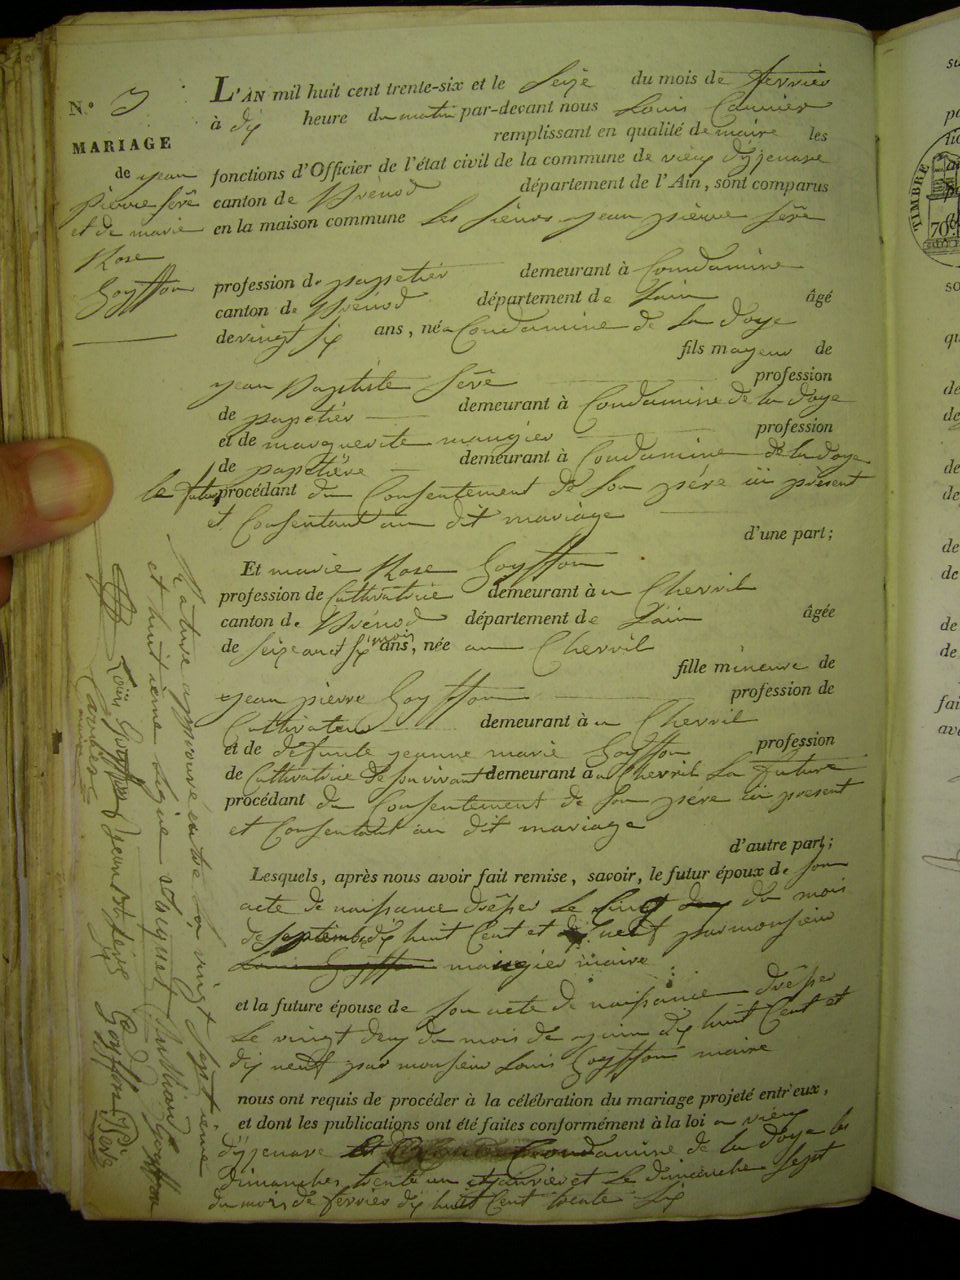 N.° 3
MARIAGE
de jean
pierre Sêve
et de marie
Rose
Goyffon
L'AN mil huit cent trente-six et le Seize du mois de fevrier
à dix heure du matin par-devant nous Louis Carrier
remplissant en qualité de maire les
fonctions d'Officier de l'état civil de la commune de vieux d'yzenave
canton de Brénod département de l'Ain, sont comparus
en la maison commune les sieurs jean pierre Sêve
profession de papetier demeurant à Condamine
canton de Brénod département de Lain âgé
de vingt six ans, né a Condamine de la doye
fils mayeur de
jean Baptiste Sêve profession
de papetier demeurant à Condamine de la doye
et de marguerite mangier profession
de papetiére demeurant à Condamine de la doye
le futur procédant du Consentement de Son pére ici présent
et Consentant au dit mariage
d'une part;
Et marie Rose Goyffon
profession de Cultivatrice demeurant à u Chevril
canton de Brenod département de Lain âgée
de Seize ans et six mois ans, née au Chevril
fille mineure de
jean pierre Goyffon profession de
Cultivateur demeurant à u Chevril
et de defunte jeanne marie Goyffon profession
de Cultivatrice de son vivant demeurant à u Chevril La future
procédant du Consentement de Son pére ici present
et Consentant au dit mariage
d'autre part;
Lesquels, après nous avoir fait remise, savoir, le futur époux de son
acte de naissance drêsser le du mois
de septembre dix huit Cent et neuf par monsieur
mangier maire
et la future épouse de son acte de naissance drêsser
Le vingt deux du mois de juin dix huit Cent et
dix neuf par monsieur Louis Goyffon maire
nous ont requis de procéder à la célébration du mariage projeté entr'eux,
et dont les publications ont été faites conformément à la loi a vieux
d'yzenave et Condamine de la doye les
Dimanches trente un janvier et Le dimanche Sept
du mois de fevrier dix huit Cent trente Six
Rature approuvé vingt septieme
et huitieme ligne Goyffon
Louis Goyffon jean Bte Sêve Goyffon
Carrier
maire
TIMBRE
70